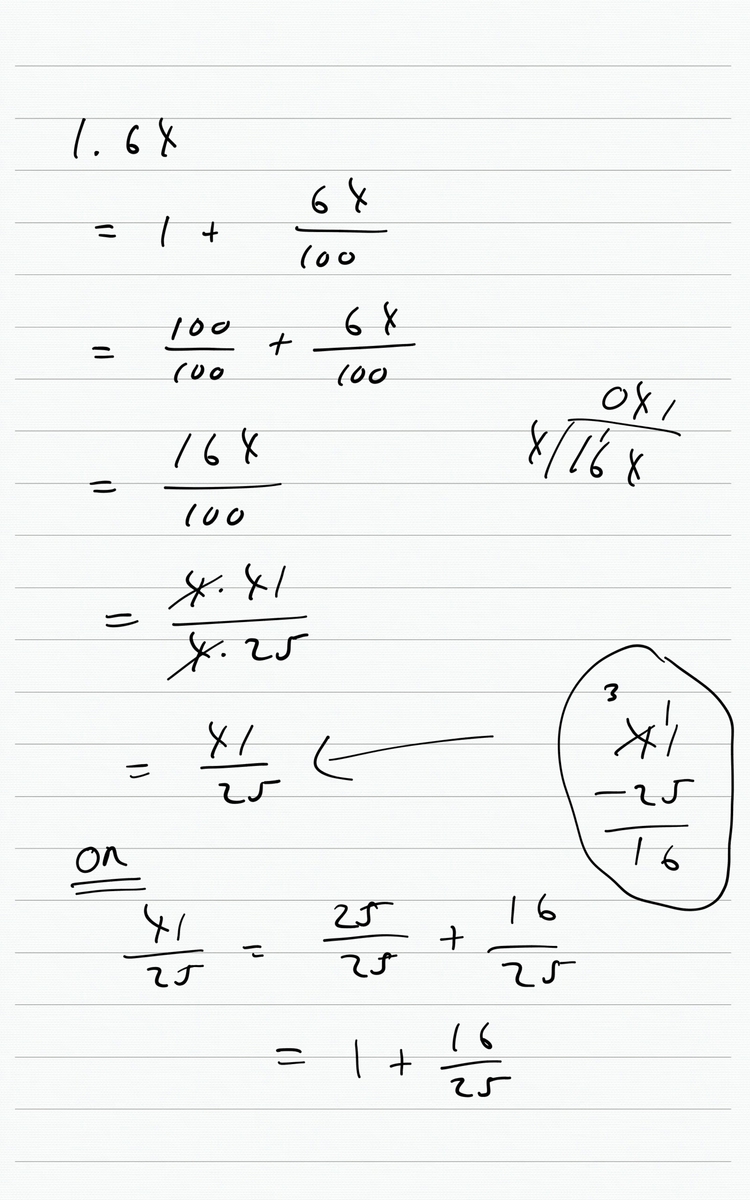 1.64
= 1 + 64/100
= 100/100 + 64/100
= 164/100
041
4/164
= 4·41/4·25
= 41/25 ←
3 1
41
-25
16
OR
41/25 = 25/25 + 16/25
= 1 + 16/25